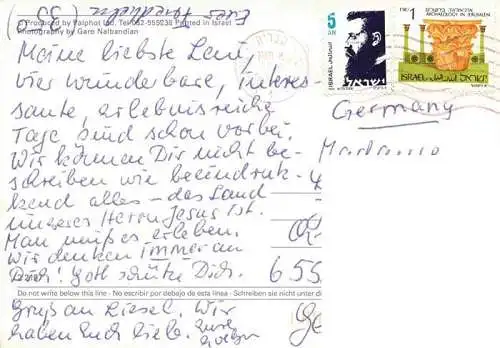 Eure
© Produced by Palphot Ltd. Tel. 052-555238 Printed in Israel
Photography by Garo Nalbandian
Meine liebste Leni,
vier wunderbare, interes-
sante, erlebnisreiche
Tage sind schon vorbei.
Wir können Dir nicht be-
schreiben wie beeindruk-
kend alles – das Land
unseres Herrn Jesus ist.
Man muß es erleben.
Wir denken immer an
Dich! Gott schütze Dich.
Do not write below this line - No escribir por debajo de esta linea - Schreiben sie nicht unter di
Gruß an Liesel. Wir
haben Euch lieb. Eure
5
AN
ISRAEL
ישראל
1
ARCHAEOLOGY IN JERUSALEM
ISRAEL
ישראל
Germany
655